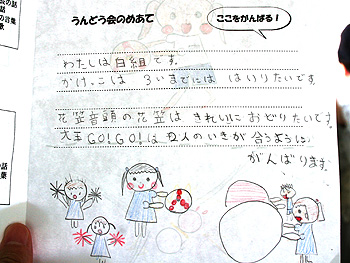 うんどう会のめあて
ここをがんばる!
わたしは白組です。
かけっこは 3いまでには はいりたいです。
花笠音頭の花笠は きれいに おどりたいです。
大玉GO!GO!は 2人のいきが 合うように
がんばります。
会の話
の言葉
歌
の話
葉